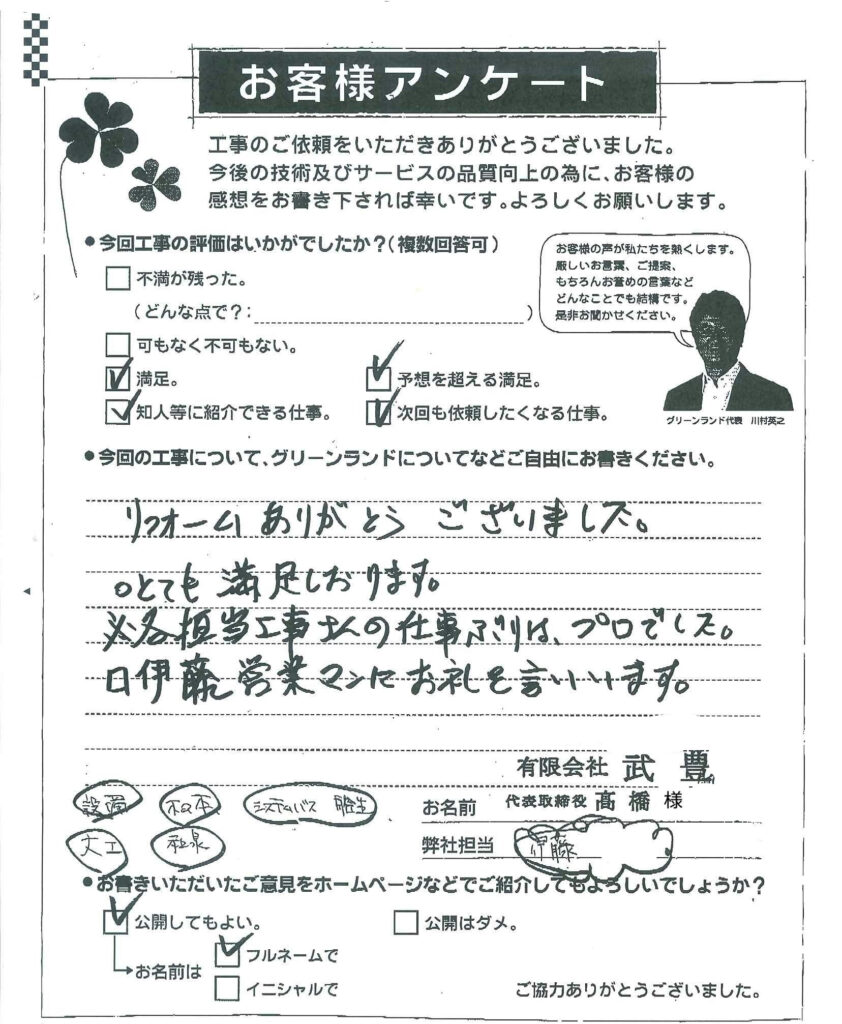 お客様アンケート
工事のご依頼をいただきありがとうございました。
今後の技術及びサービスの品質向上の為に、お客様の
感想をお書き下されば幸いです。よろしくお願いします。
●今回工事の評価はいかがでしたか？(複数回答可)
お客様の声が私たちを熱くします。
厳しいお言葉、ご提案、
もちろんお誉めの言葉など
どんなことでも結構です。
是非お聞かせください。
不満が残った。
(どんな点で？: )
可もなく不可もない。
満足。 予想を超える満足。
知人等に紹介できる仕事。 次回も依頼したくなる仕事。
グリーンランド代表 川村英之
●今回の工事について、グリーンランドについてなどご自由にお書きください。
リフォームありがとうございました。
○とても満足しおります。
※各担当工事士人の仕事ぶりは、プロでした。
口伊藤営業マンにお礼を言いいます。
有限会社 武豊
設備 システムバス お名前 代表取締役 髙橋 様
大工 和泉 弊社担当 伊藤
●お書きいただいたご意見をホームページなどでご紹介してもよろしいでしょうか？
公開してもよい。 公開はダメ。
お名前は フルネームで
イニシャルで ご協力ありがとうございました。